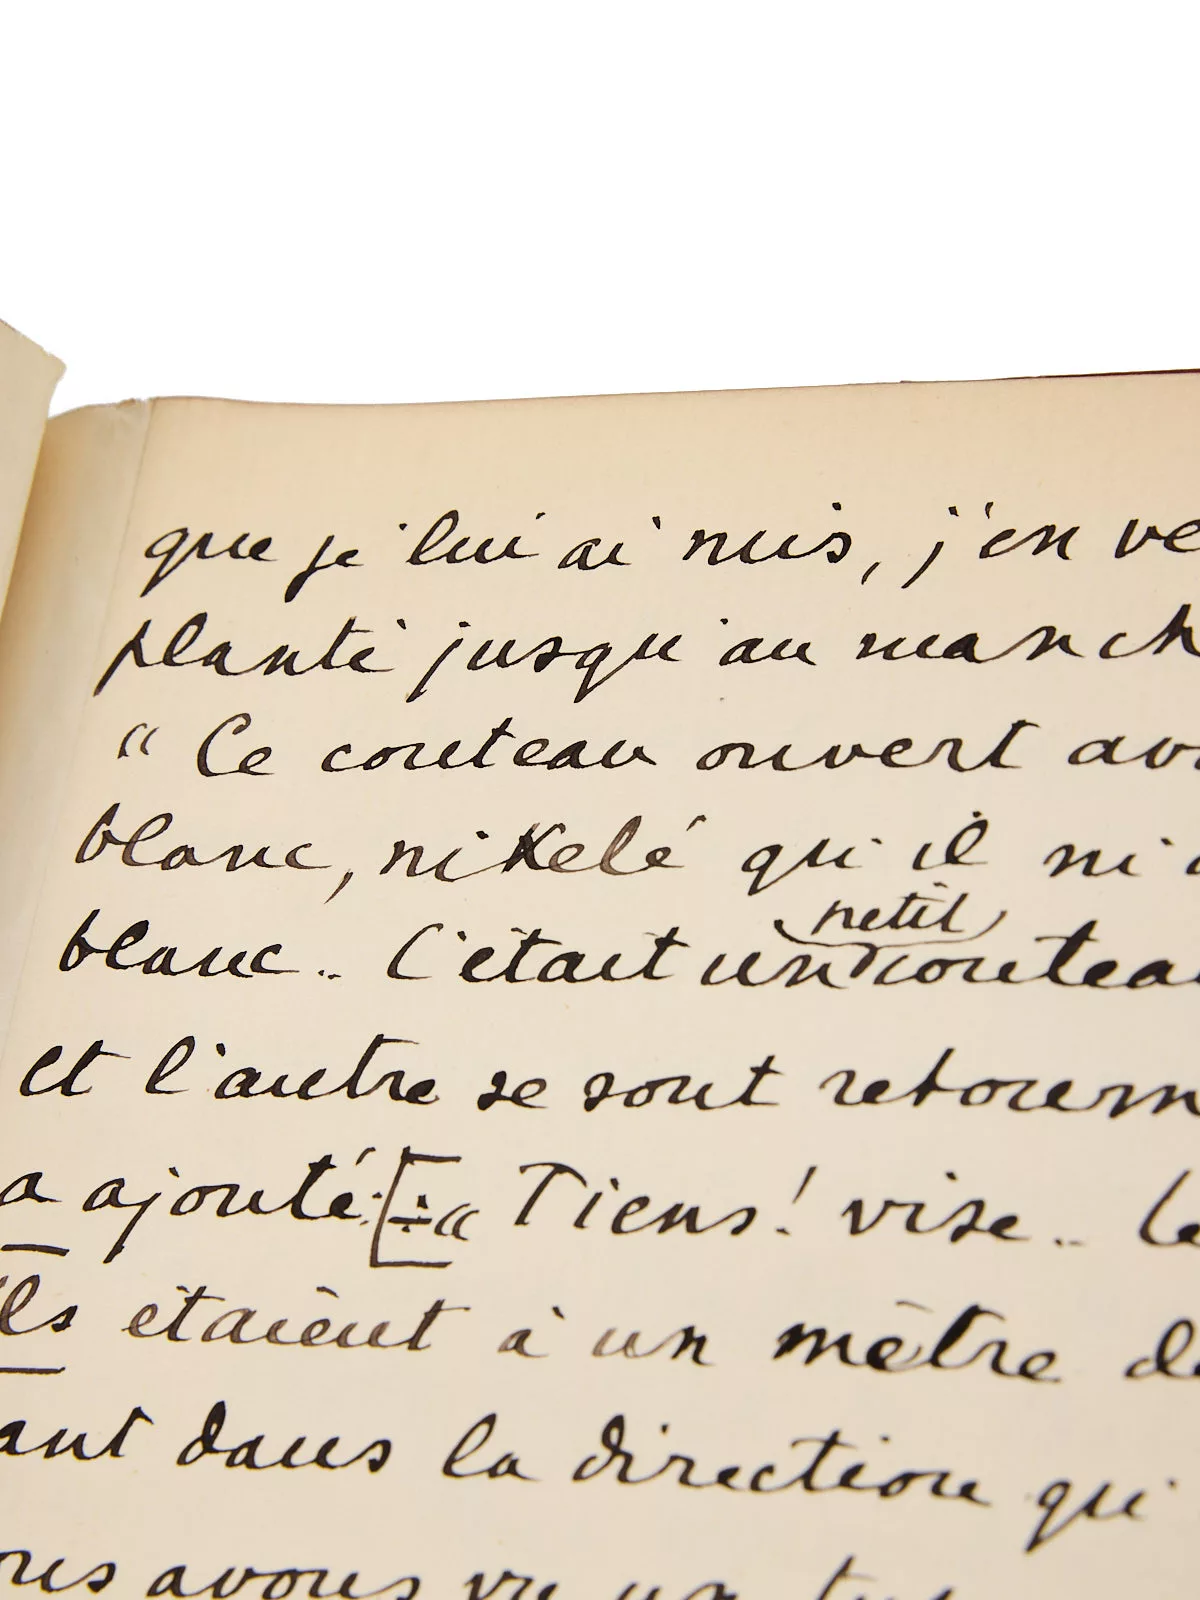 que je lui ai mis, j'en ve
planté jusqu'au manch
" Ce couteau ouvert av
blanc, nikelé qui il ni
petit
blanc.. C'était un couteau
et l'autre se sont retourn
a ajouté : " Tiens! vise.. le
Ils étaient à un mètre de
ant dans la direction qui
ous avons vu un